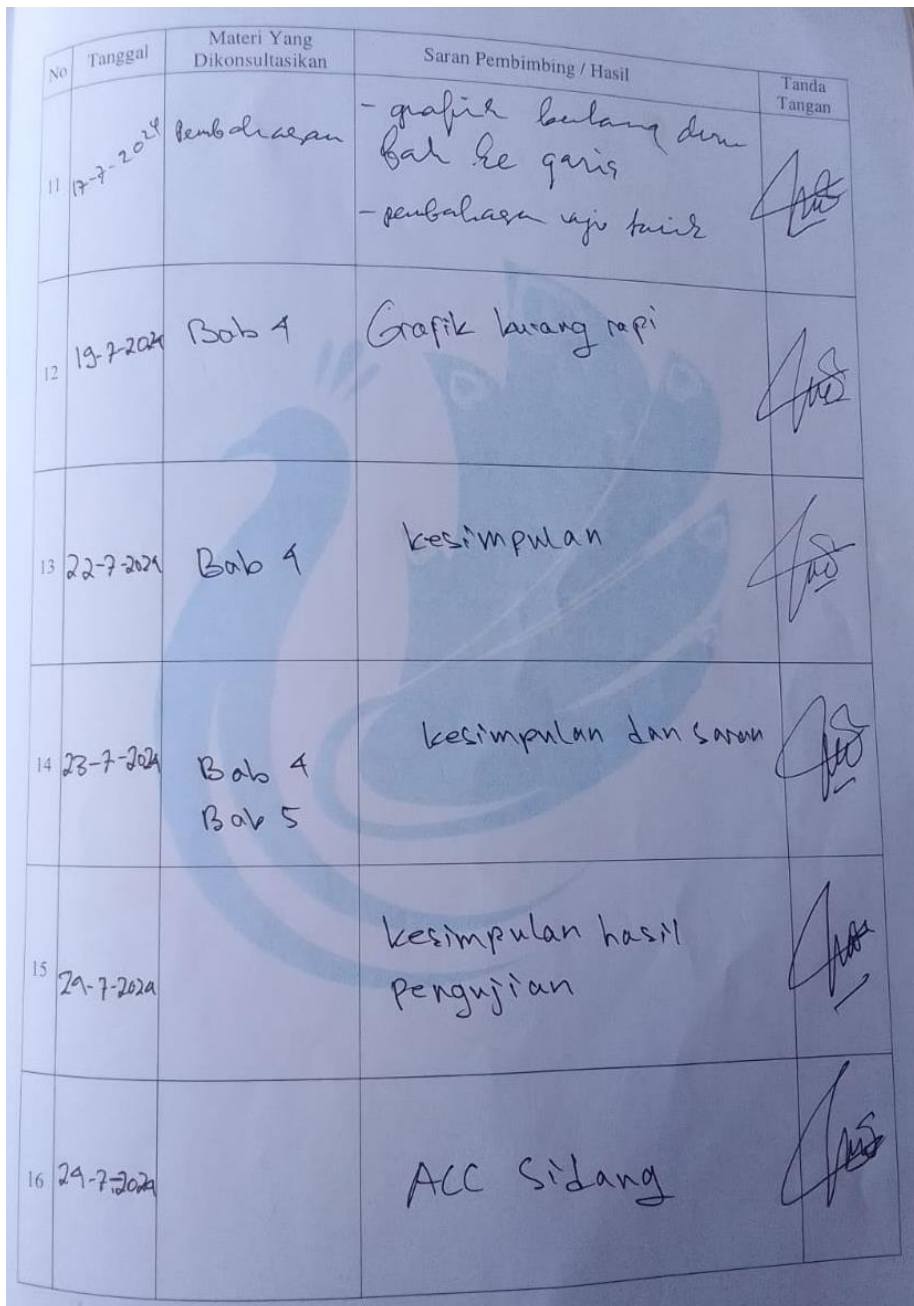 No
Tanggal
Materi Yang
Dikonsultasikan
Saran Pembimbing / Hasil
Tanda
Tangan
11
17-7-2024
Pembahasan
- grafik batang diru
bah ke garis
- pembahasan uji tarik
12
19-7-2024
Bab 4
Grafik kurang rapi
13
22-7-2024
Bab 4
kesimpulan
14
23-7-2024
Bab 4
Bab 5
kesimpulan dan saran
15
24-7-2024
kesimpulan hasil
pengujian
16
24-7-2024
ACC Sidang